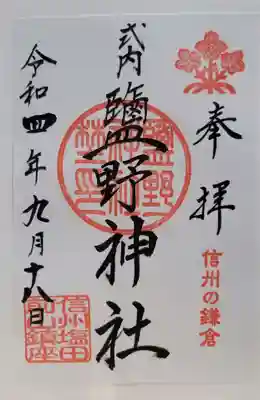 奉拝
信州の鎌倉
式内
鹽野神社
令和四年九月十八日
信州塩田
前山鎮座